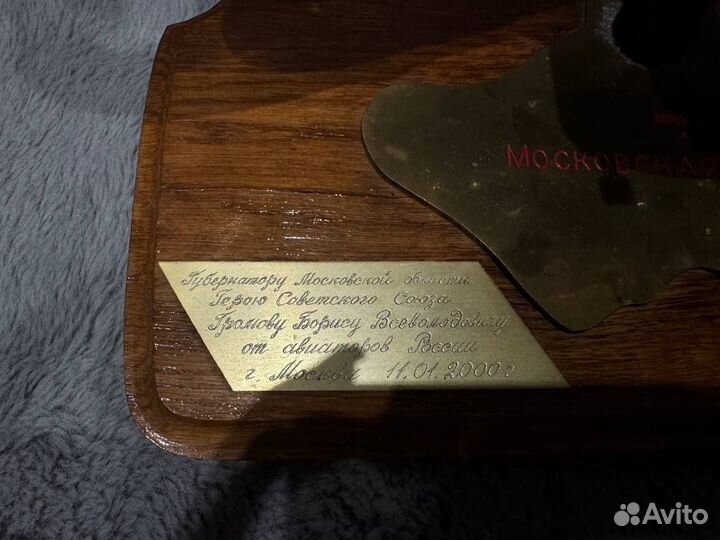 МОСКОВСКАЯ
Губернатору Московской области
Герою Советского Союза
Громову Борису Всеволодовичу
от авиаторов России
г. Москва 11.01.2000 г
Avito